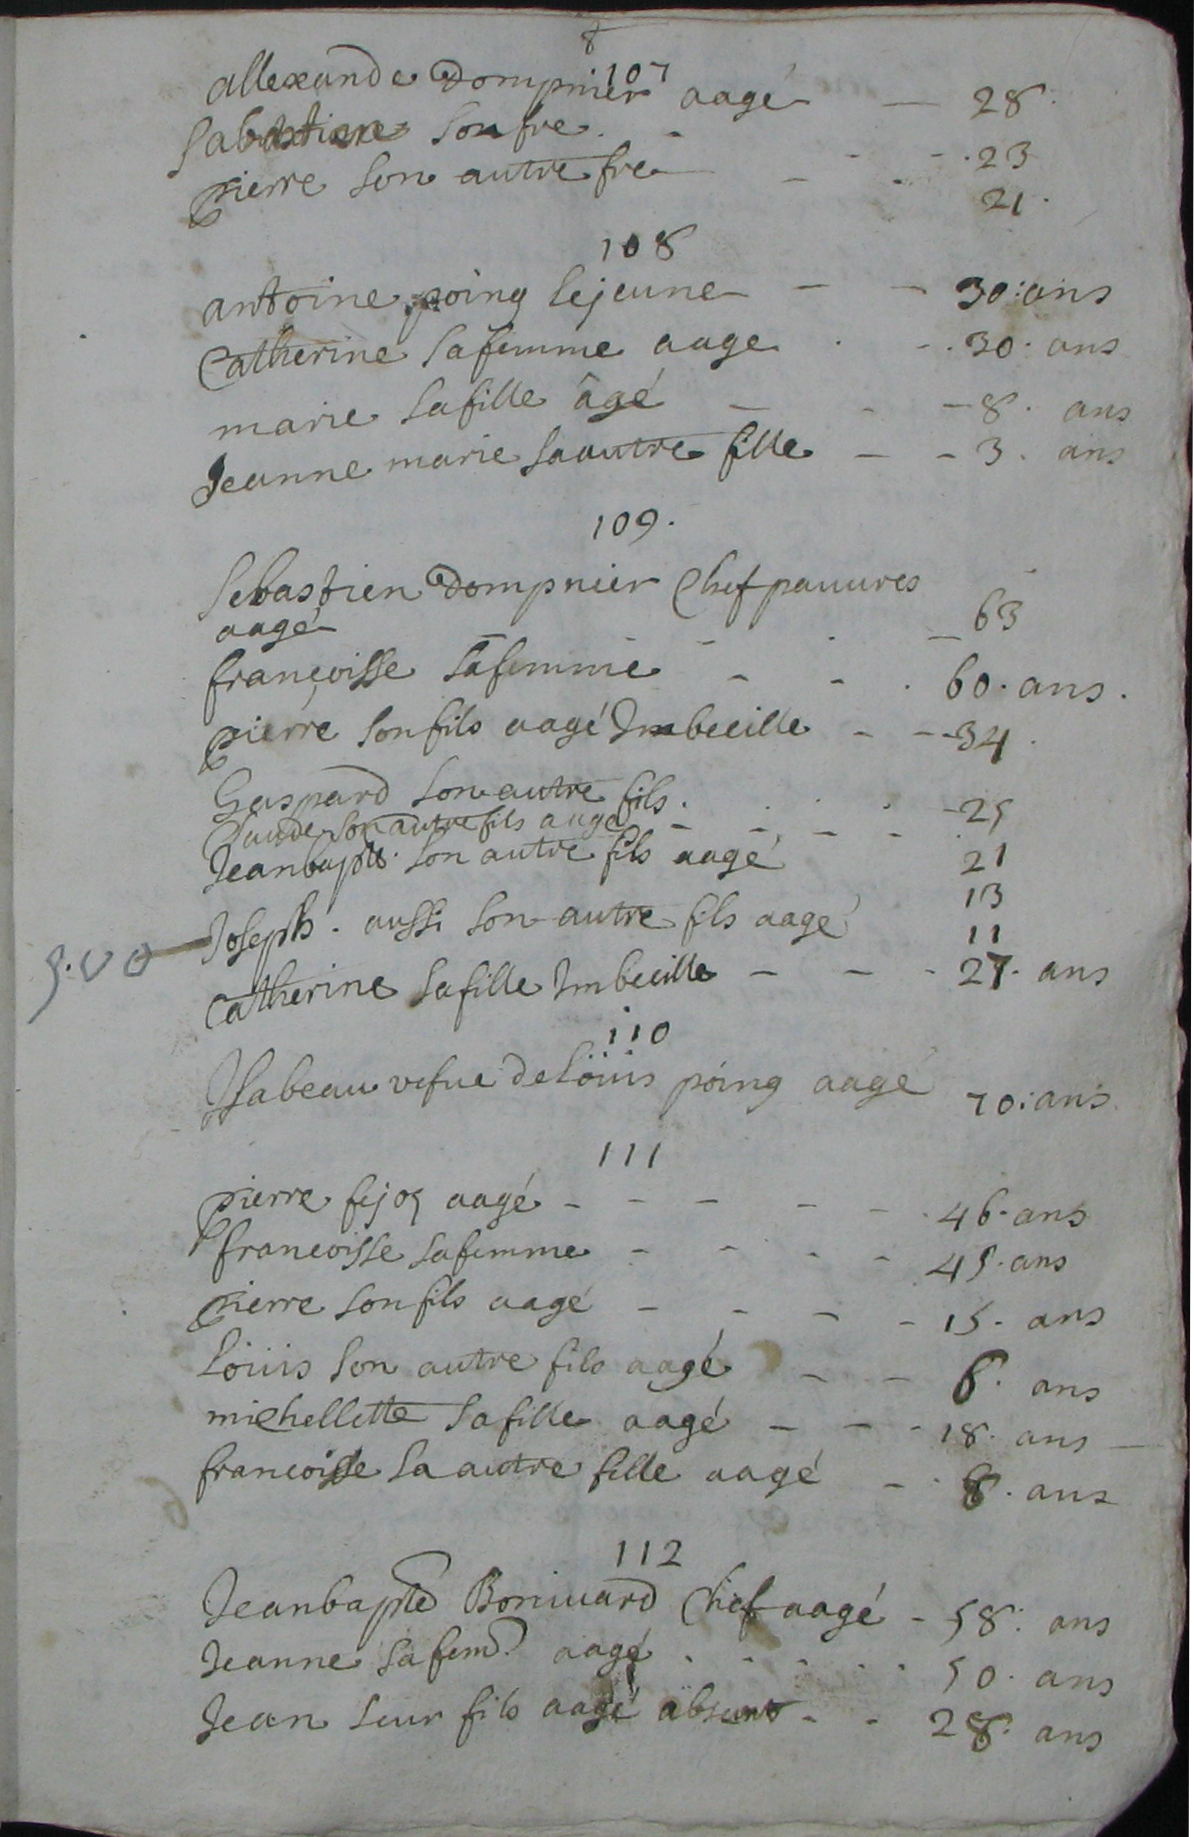 8
107
allexandre Dompnier aagé — 28
Sabastien son fre. - - - 23
pierre son autre fre — - - 21.
108
antoine poing lejeune — - - 30: ans
Catherine sa femme aage . - 30. ans
marie sa fille âgé - - - 8. ans
Jeanne marie sa autre fille - - 3. ans
109.
Sebastien Dompnier Chef pauures
aagé - - - 63
francoisse sa femme - - . 60. ans.
pierre son fils aagé Imbecille - - 34.
Gaspard son autre fils. . . . - 25
Claude son autre fils aagé - - - - 21
Jeanbapte. son autre fils aagé 13
Joseph. aussi son autre fils aagé 11
Catherine sa fille Imbecille - - - 27. ans
110
Isabeau vefue de Löuis poing aagé 70: ans
111
pierre fejoz aagé - - - - - 46. ans
francoisse sa femme - - - - 45. ans
pierre son fils aagé - - - - 15. ans
Löuis son autre fils aagé - - 6. ans
michellette sa fille aagé - - - 18. ans —
francoisse sa autre fille aagé - . 8. ans
112
Jeanbapte Boniuard Chef aagé - 58: ans
Jeanne sa fem. aagé . . . . . 50. ans
Jean leur fils aagé absent - - 28. ans